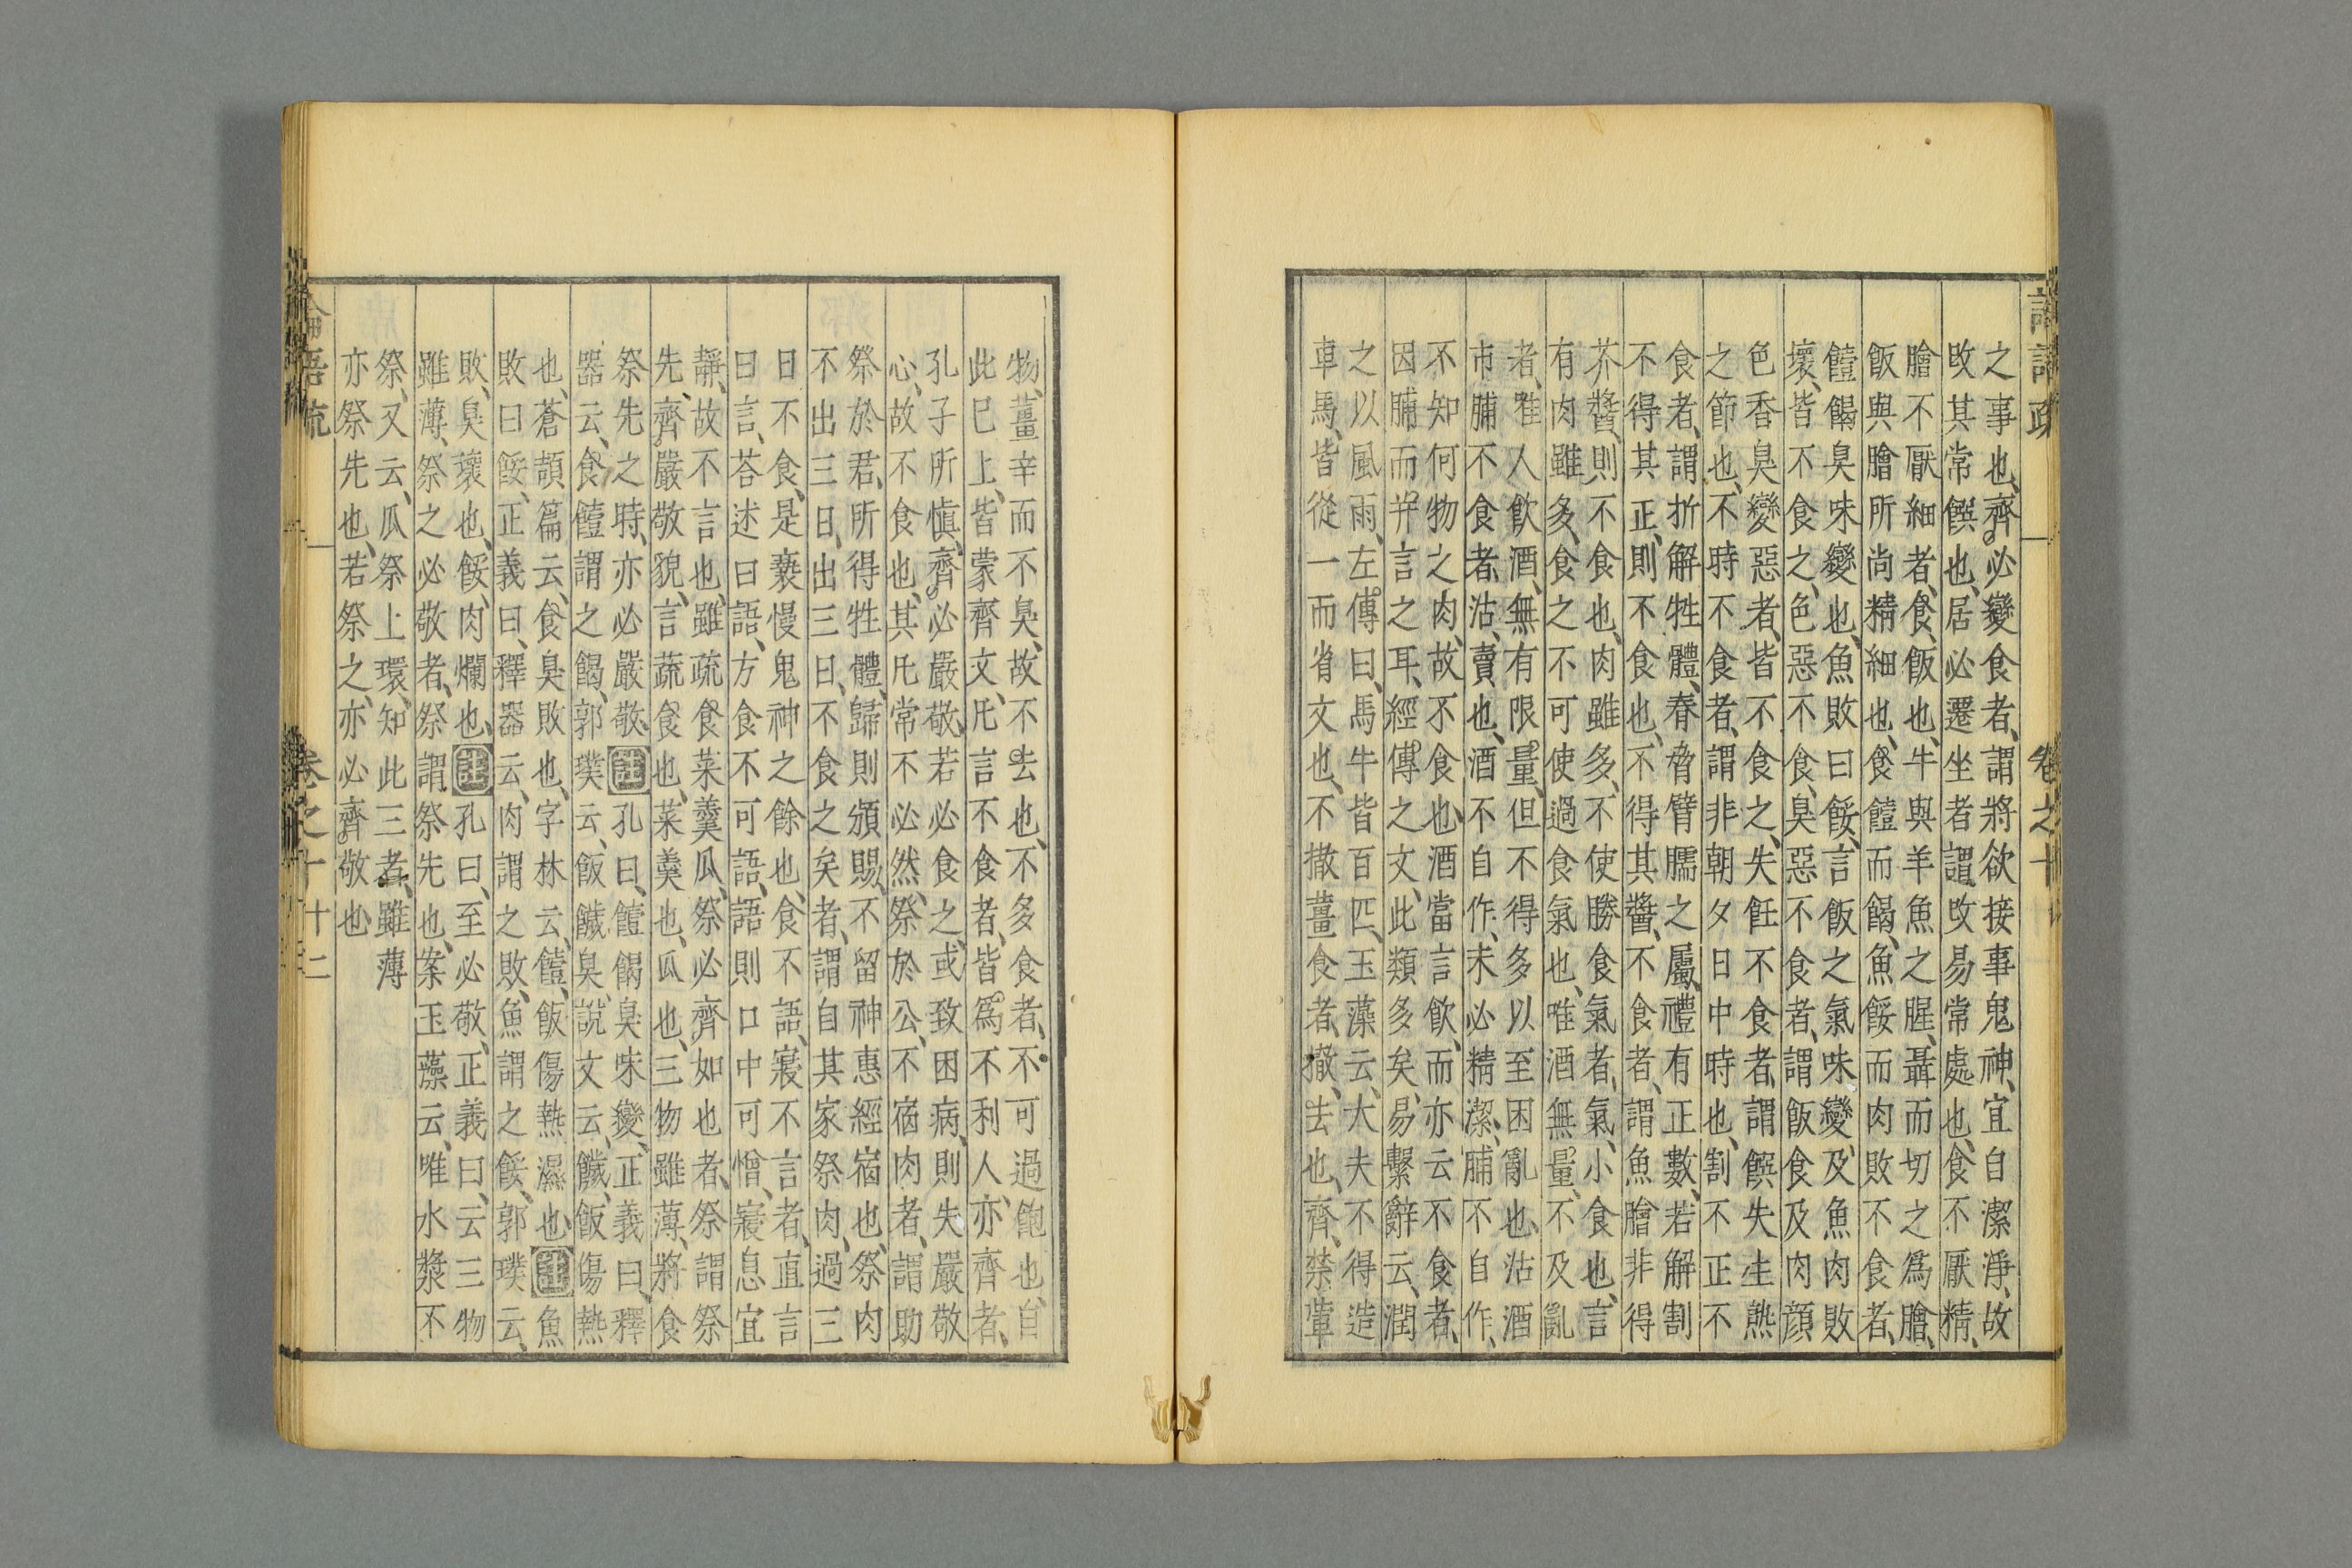 之事也齊必變食者謂將欲接事鬼神宜自潔淨故
改其常饌也居必遷坐者謂改易常處也食不厭精
膾不厭細者食飯也牛與羊魚之腥聶而切之爲膾
飯與膾所尚精細也食饐而餲魚餒而肉敗不食者
饐餲臭味變也魚敗曰餒言飯之氣味變及魚肉敗
壞皆不食之色惡不食臭惡不食者謂飯食及肉顔
色香臭變惡者皆不食之失飪不食者謂饌失生熟
之節也不時不食者謂非朝夕日中時也割不正不
食者謂折解牲體脊脅臂臑之屬禮有正數若解割
不得其正則不食也不得其醬不食者謂魚膾非得
芥醬則不食也肉雖多不使勝食氣者氣小食也言
有肉雖多食之不可使過食氣也唯酒無量不及亂
者唯人飲酒無有限量但不得多以至困亂也沽酒
市脯不食者沽賣也酒不自作未必精潔脯不自作
不知何物之肉故不食也酒當言飲而亦云不食者
因脯而并言之耳經傳之文此類多矣易繫辭云潤
之以風雨左傳曰馬牛皆百匹玉藻云大夫不得造
車馬皆從一而省文也不撤薑食者撤去也齊禁葷
物薑辛而不臭故不去也不多食者不可過飽也自
此已上皆蒙齊文凡言不食者皆爲不利人亦齊者
孔子所愼齊必嚴敬若必食之或致困病則失嚴敬
心故不食也其凡常不必然祭於公不宿肉者謂助
祭於君所得牲體歸則頒賜不留神惠經宿也祭肉
不出三日出三日不食之矣者謂自其家祭肉過三
日不食是褻慢鬼神之餘也食不語寢不言者直言
曰言荅述曰語方食不可語語則口中可憎寢息宜
靜故不言也雖疏食菜羹瓜祭必齊如也者祭謂祭
先齊嚴敬貌言蔬食也菜羹也瓜也三物雖薄將食
祭先之時亦必嚴敬註孔曰饐餲臭味變正義曰釋
器云食饐謂之餲郭璞云飯饖臭說文云饖飯傷熱
也蒼頡篇云食臭敗也字林云饐飯傷熱濕也註魚
敗曰餒正義曰釋器云肉謂之敗魚謂之餒郭璞云
敗臭壞也餒肉爛也註孔曰至必敬正義曰云三物
雖薄祭之必敬者祭謂祭先也案玉藻云唯水漿不
祭又云瓜祭上環知此三者雖薄
亦祭先也若祭之亦必齊敬也
論語疏 卷之十 十二